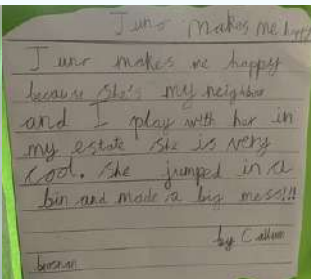 Juno makes me happy
Juno makes me happy
because she's my neighbour
and I play with her in
my estate she is very
cool. She jumped in a
bin and made a big mess!!!
by Callum